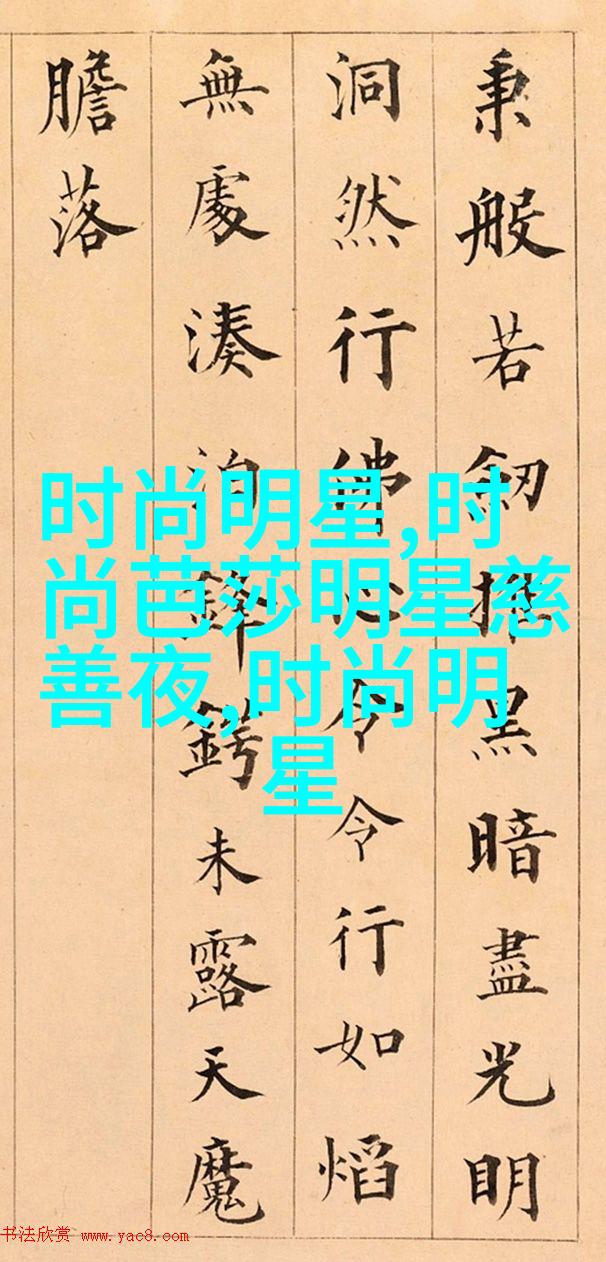 秉般若釼黑暗盡光明
洞然行佛心令令行如熖
無處湊泊鋒鍔未露天魔
膽落
时尚明星,时
尚芭莎明星慈
善夜,时尚明
星
书法欣赏 www.yac8.com